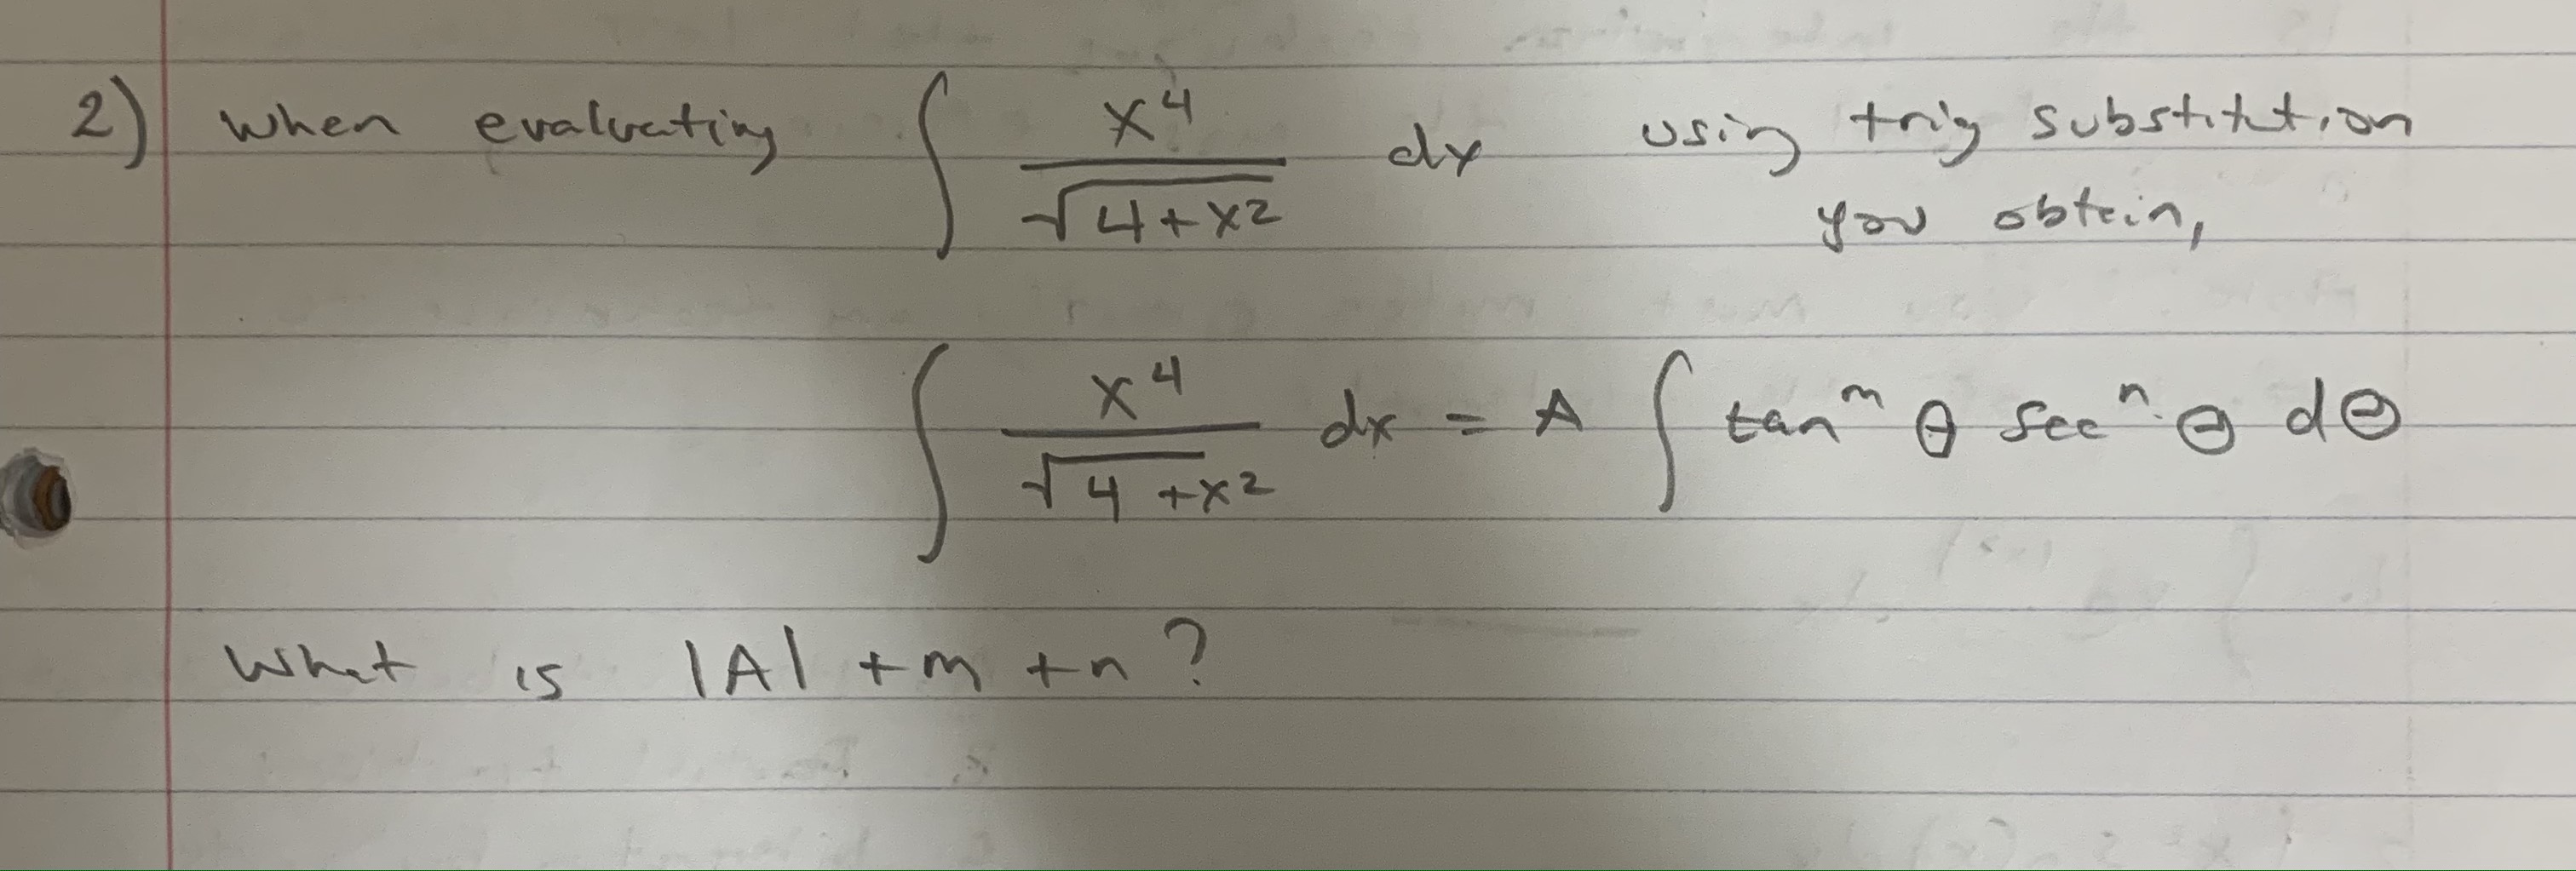 2) when evaluating ∫ x⁴/√(4+x²) dx using trig substitution
you obtain,
∫ x⁴/√(4+x²) dx = A ∫ tanᵐ θ secⁿ θ dθ
What is |A| + m + n?